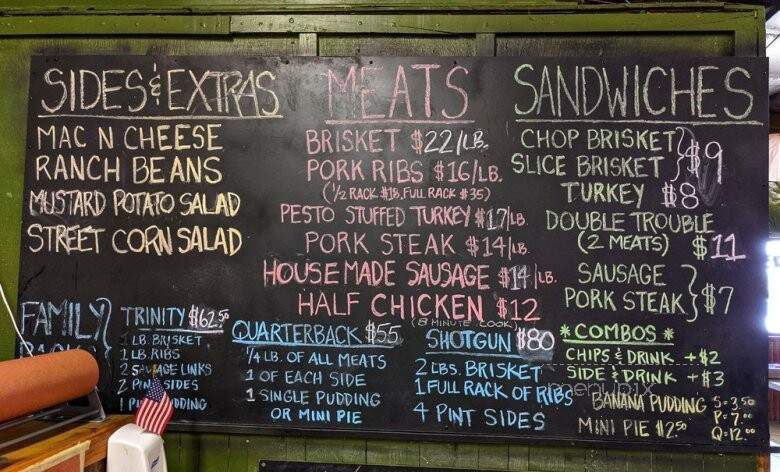 SIDES & EXTRAS
MAC N CHEESE
RANCH BEANS
MUSTARD POTATO SALAD
STREET CORN SALAD
MEATS
BRISKET $22/LB.
PORK RIBS $16/LB.
(1/2 RACK $18, FULL RACK $35)
PESTO STUFFED TURKEY $17/LB.
PORK STEAK $14/LB.
HOUSE MADE SAUSAGE $14/LB.
HALF CHICKEN $12
(8 MINUTE COOK)
SANDWICHES
CHOP BRISKET
SLICE BRISKET } $9
TURKEY $8
DOUBLE TROUBLE
(2 MEATS) $11
SAUSAGE
PORK STEAK } $7
FAMILY
TRINITY $62.50
1 LB. BRISKET
1 LB RIBS
2 SAUSAGE LINKS
2 PINT SIDES
PUDDING
QUARTERBACK $55
1/4 LB. OF ALL MEATS
1 OF EACH SIDE
1 SINGLE PUDDING
OR MINI PIE
SHOTGUN $80
2 LBS. BRISKET
1 FULL RACK OF RIBS
4 PINT SIDES
* COMBOS *
CHIPS & DRINK +$2
SIDE & DRINK +$3
menupix
BANANA PUDDING S=3.50
P=7.00
Q=12.00
MINI PIE $2.50